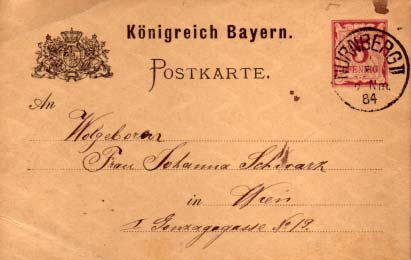 Königreich Bayern.
POSTKARTE.
5
PFENNIG
NÜRNBERG II
Nm.
84
An
Wolgeboren
Frau Johanna Schwarz
in Wien
I. Gonzagagasse No 19.